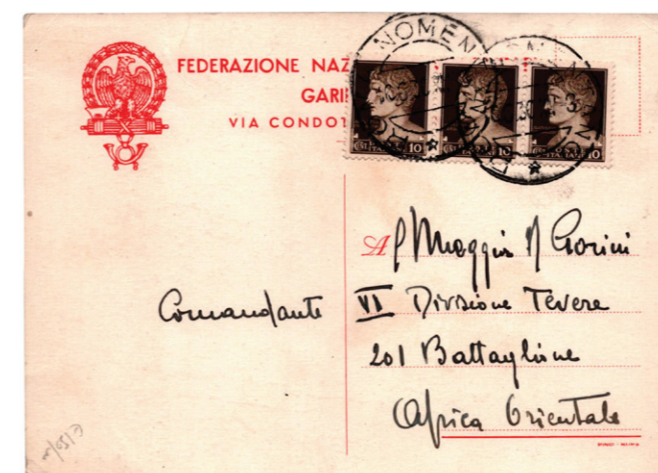 FEDERAZIONE NAZ
GARI
VIA CONDOT
NOMEN
10
10
10
A
Maggio
Gorini
Comandante VI Divisione Tevere
201 Battaglione
Africa Orientale